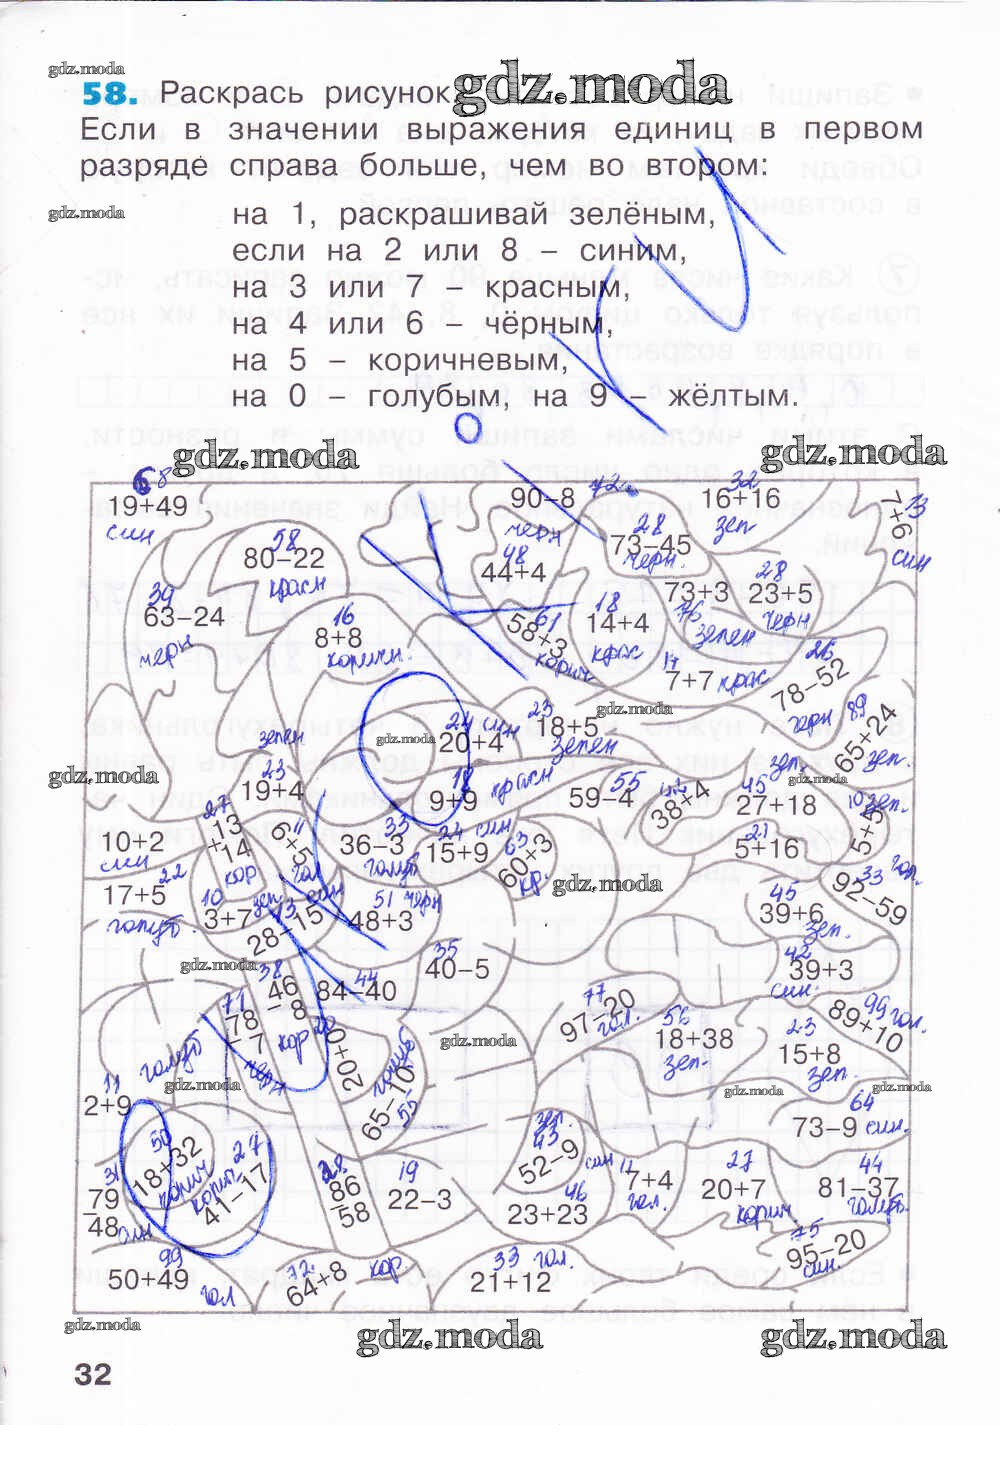 gdz.moda
58. Раскрась рисунок.
gdz.moda
Если в значении выражения единиц в первом
разряде справа больше, чем во втором:
gdz.moda
на 1, раскрашивай зелёным,
если на 2 или 8 – синим,
на 3 или 7 – красным,
на 4 или 6 – чёрным,
на 5 – коричневым,
на 0 – голубым, на 9 – жёлтым.
gdz.moda gdz.moda
68 72 32 13
19+49 90–8 16+16 7+6
син черн зел син
58 28
80–22 73–45
красн черн.
48 28
44+4 73+3 23+5
39 76 зелен черн
63–24
черн
16 61 18
8+8 58+3 14+4
коричн. корич крас
14 26
7+7 крас 78–52
черн
gdz.moda
24 син 23 89
20+4 18+5 65+24
зелен зел.
gdz.moda
зелен
gdz.moda
23 18 красн 55 45
19+4 9+9 59–4 38+4 27+18
зел.
gdz.moda
27 11 33 24 син 63 21 10 зел.
10+2 13+14 6+5 36–3 15+9 60+3 5+16 5+5
син кор гол голуб кр.
gdz.moda
22 10 зел. 51 черн 45 33 гол.
17+5 3+7 28–15 48+3 39+6 92–59
голуб. 43 зел.
gdz.moda
38 44 35 42
46–8 84–40 40–5 39+3
кор син.
71 20 77 56 23 99 гол.
78–7 20+0 97–20 18+38 15+8 89+10
черн гол. зел. зел.
gdz.moda
голуб голуб
gdz.moda gdz.moda gdz.moda
11 55 64
2+9 65–10 73–9 син.
50 27 зел. 43
18+32 41–17 52–9
корич корич.
31 28 19 46 син 11 27 44
79–48 86–58 22–3 23+23 7+4 20+7 81–37
син гол. корич голуб.
99 72 кор 33 гол. 75
50+49 64+8 21+12 95–20
гол син.
gdz.moda gdz.moda gdz.moda
32